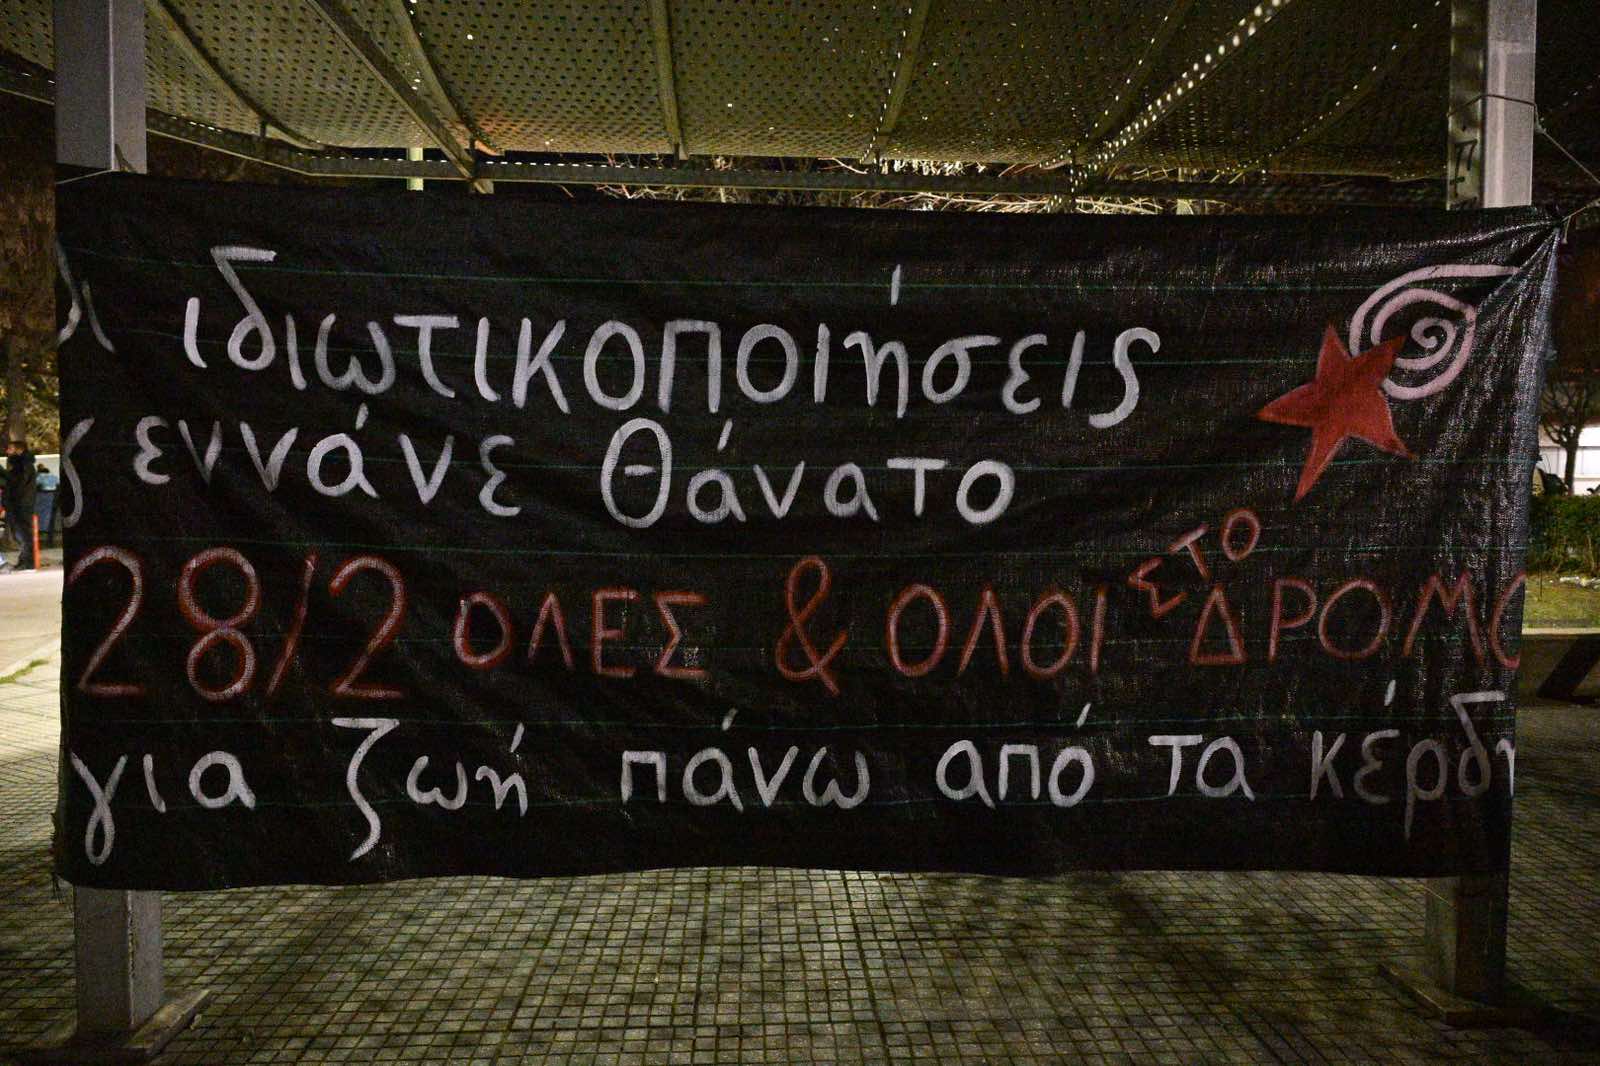 οι ιδιωτικοποιήσεις
ς εννάνε θάνατο
28/2 ΟΛΕΣ & ΟΛΟΙ ΣΤΟ ΔΡΟΜΟ
για ζωή πάνω από τα κέρδη